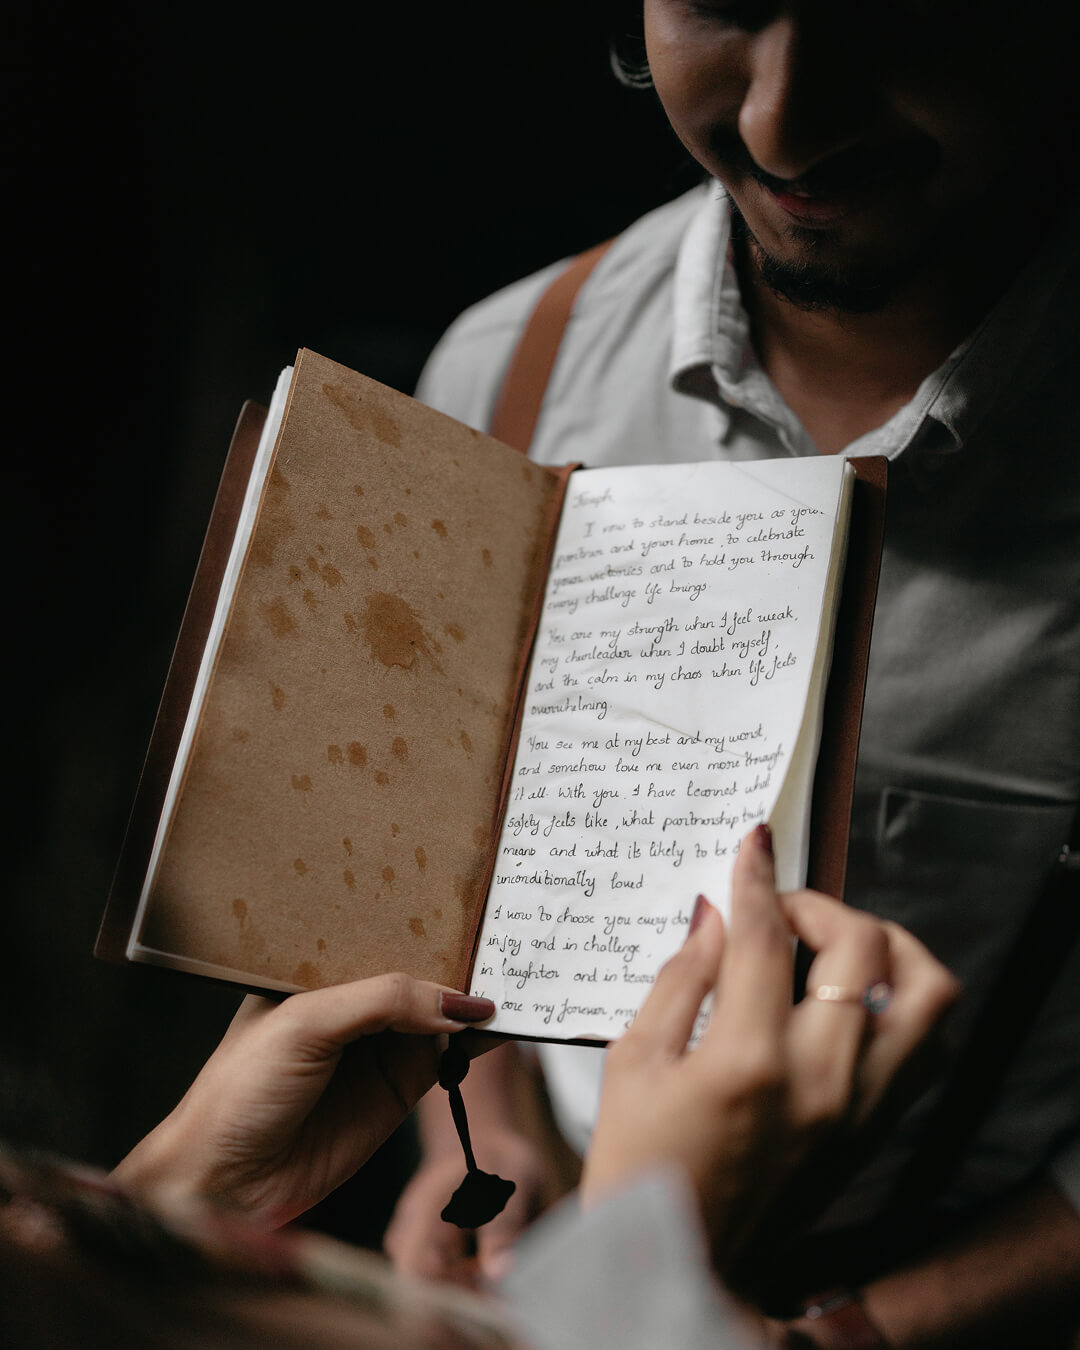 Joseph,
I vow to stand beside you as your
partner and your home, to celebrate
your victories and to hold you through
every challenge life brings.
You are my strength when I feel weak,
my cheerleader when I doubt myself,
and the calm in my chaos when life feels
overwhelming.
You see me at my best and my worst,
and somehow love me even more through
it all. With you, I have learned what
safety feels like, what partnership truly
means and what its likely to be
unconditionally loved
I vow to choose you every
in joy and in challenge,
in laughter and in tears
are my forever, my